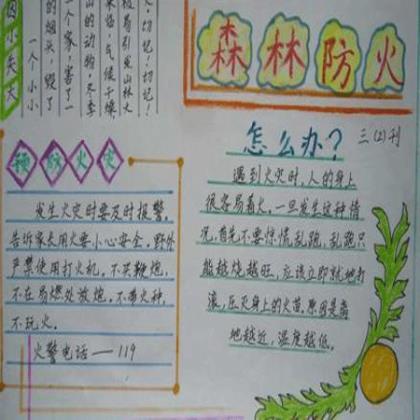 森林防火
因小失大
一个小小
的烟头，毁了
一个家，害了一
山的动物。冬季
来临，气候干燥
极易引起山林火
切记！切记！
预防火灾
发生火灾时要及时报警，
告诉家长用火要小心安全。野外
严禁使用打火机。不买鞭炮，
不在易燃处放炮。不带火种，
不玩火。
火警电话——119
怎么办？
三(2)刊
遇到火灾时，人的身上
很容易着火。一旦发生这种情
况，首先不要惊慌乱跑，乱跑只
能越烧越旺，应该立即就地打
滚，压灭身上的火苗。原因是离
地越近，温度越低。